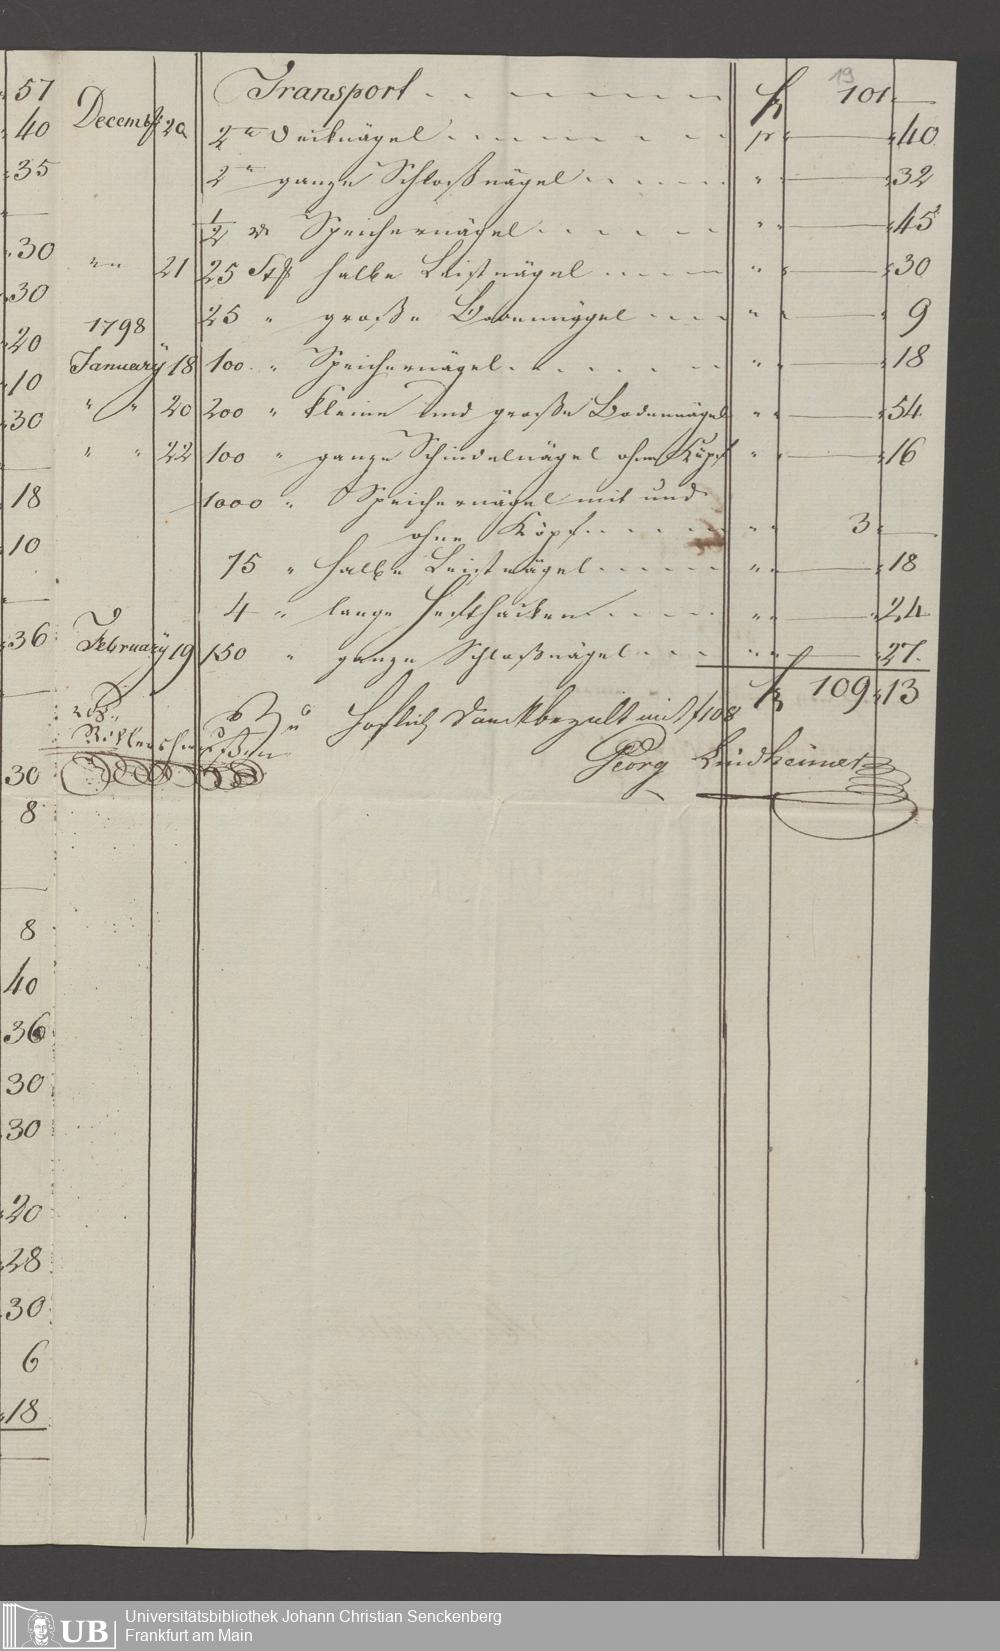 57
40
35
30
30
20
10
30
18
10
36
30
8
8
40
36
30
30
20
28
30
6
18
19
Transport . . . f 101. —
Decembr 20 2 " Decknägel . . . pr " — " 40
2 " ganze Schloßnägel . . . " " — " 32
1/2 " Speichernägel . . . " " — " 45
" " 21 25 Stk halbe Leistnägel . . . " " — " 30
25 " große Bodennägel . . . " " — " 9
1798
January 18 100 " Speichernägel . . . " " — " 18
" " 20 200 " kleine und große Bodennägel " " — " 54
" " 22 100 " ganze Schindelnägel ohne Köpf " " — " 16
1000 " Speichernägel mit und
ohne Köpf . . . " " 3 " —
75 " halbe Leistnägel . . . " " — " 18
4 " lange Hefthacken . . . " " — " 24
February 19 150 " ganze Schloßnägel . . . " " — " 27
f 109 " 13
höflich Danck bezalt mit f 108
Georg Lindheimer
UB Universitätsbibliothek Johann Christian Senckenberg
Frankfurt am Main